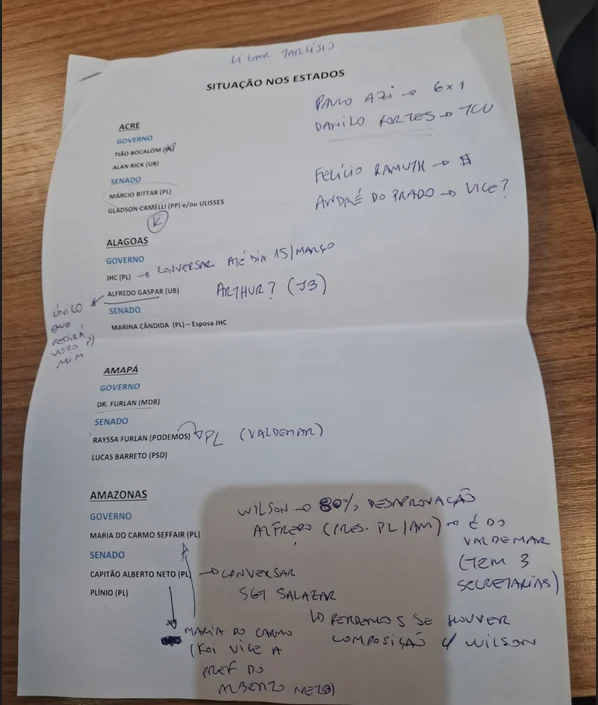 LIGAR TARCÍSIO
SITUAÇÃO NOS ESTADOS
PAULO AZI → 6x1
DANILO FORTES → TCU
FELÍCIO RAMUTH → $
ANDRÉ DO PRADO → VICE?
ACRE
GOVERNO
TIÃO BOCALOM
ALAN RICK (UB)
SENADO
MÁRCIO BITTAR (PL)
GLADSON CAMELLI (PP) e/ou ULISSES
ALAGOAS
GOVERNO
JHC (PL) → CONVERSAR ATÉ DIA 15/MARÇO
ALFREDO GASPAR (UB)
ARTHUR? (JB)
ÚNICO
QUE
VOTO P/
MIM
SENADO
MARINA CÂNDIDA (PL) – Esposa JHC
AMAPÁ
GOVERNO
DR. FURLAN (MDB)
SENADO
RAYSSA FURLAN (PODEMOS) → PL (VALDEMAR)
LUCAS BARRETO (PSD)
AMAZONAS
GOVERNO
MARIA DO CARMO SEFFAIR (PL)
SENADO
CAPITÃO ALBERTO NETO (PL) → CONVERSAR
PLÍNIO (PL)
WILSON → 80% DESAPROVAÇÃO
ALFREDO (PRES. PL/AM) → É DO
VALDEMAR
(TEM 3
SECRETARIAS)
SGT SALAZAR
↳ PERDEMOS SE HOUVER
COMPOSIÇÃO C/ WILSON
MARIA DO CARMO
(FOI VICE A
PREF DO
ALBERTO NETO)